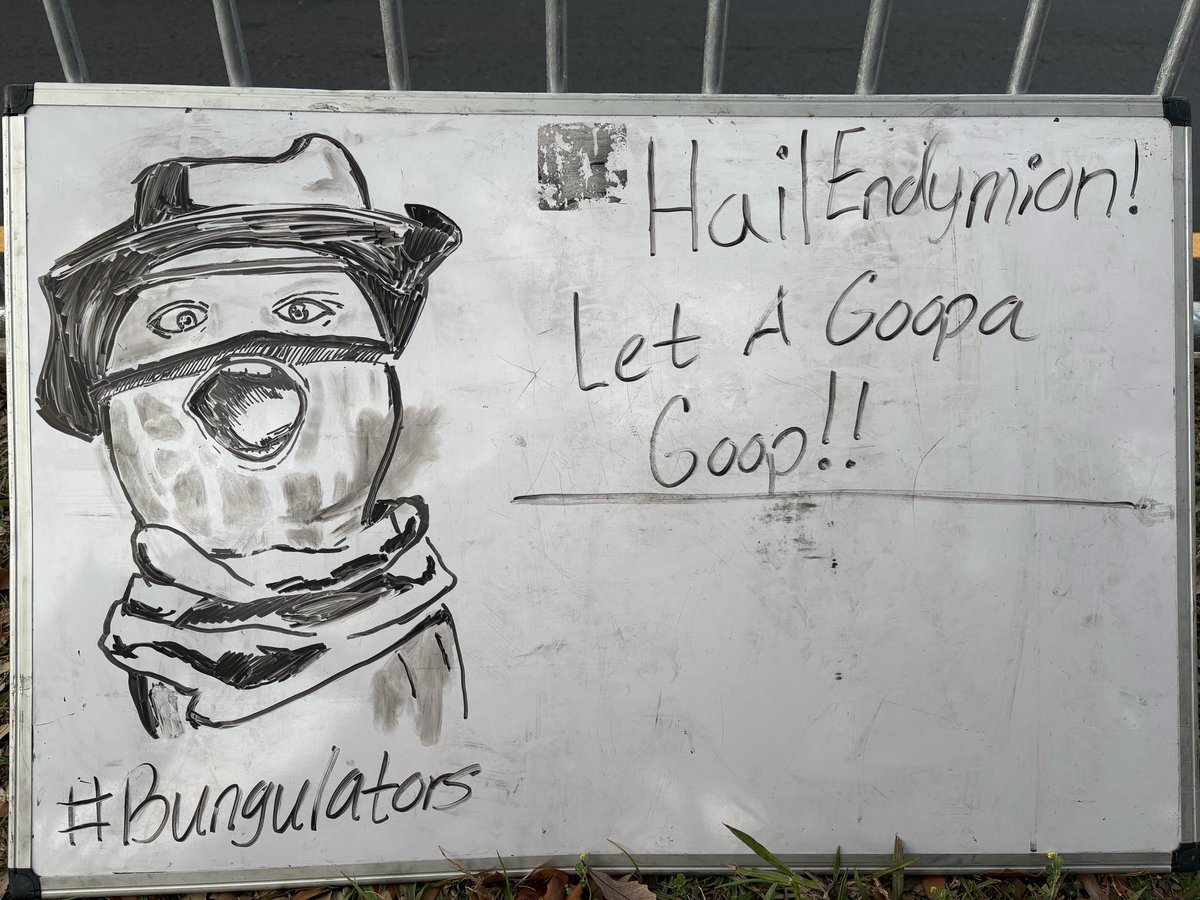 Hail Endymion!
Let A Goopa
Goop!!
#Bungulators